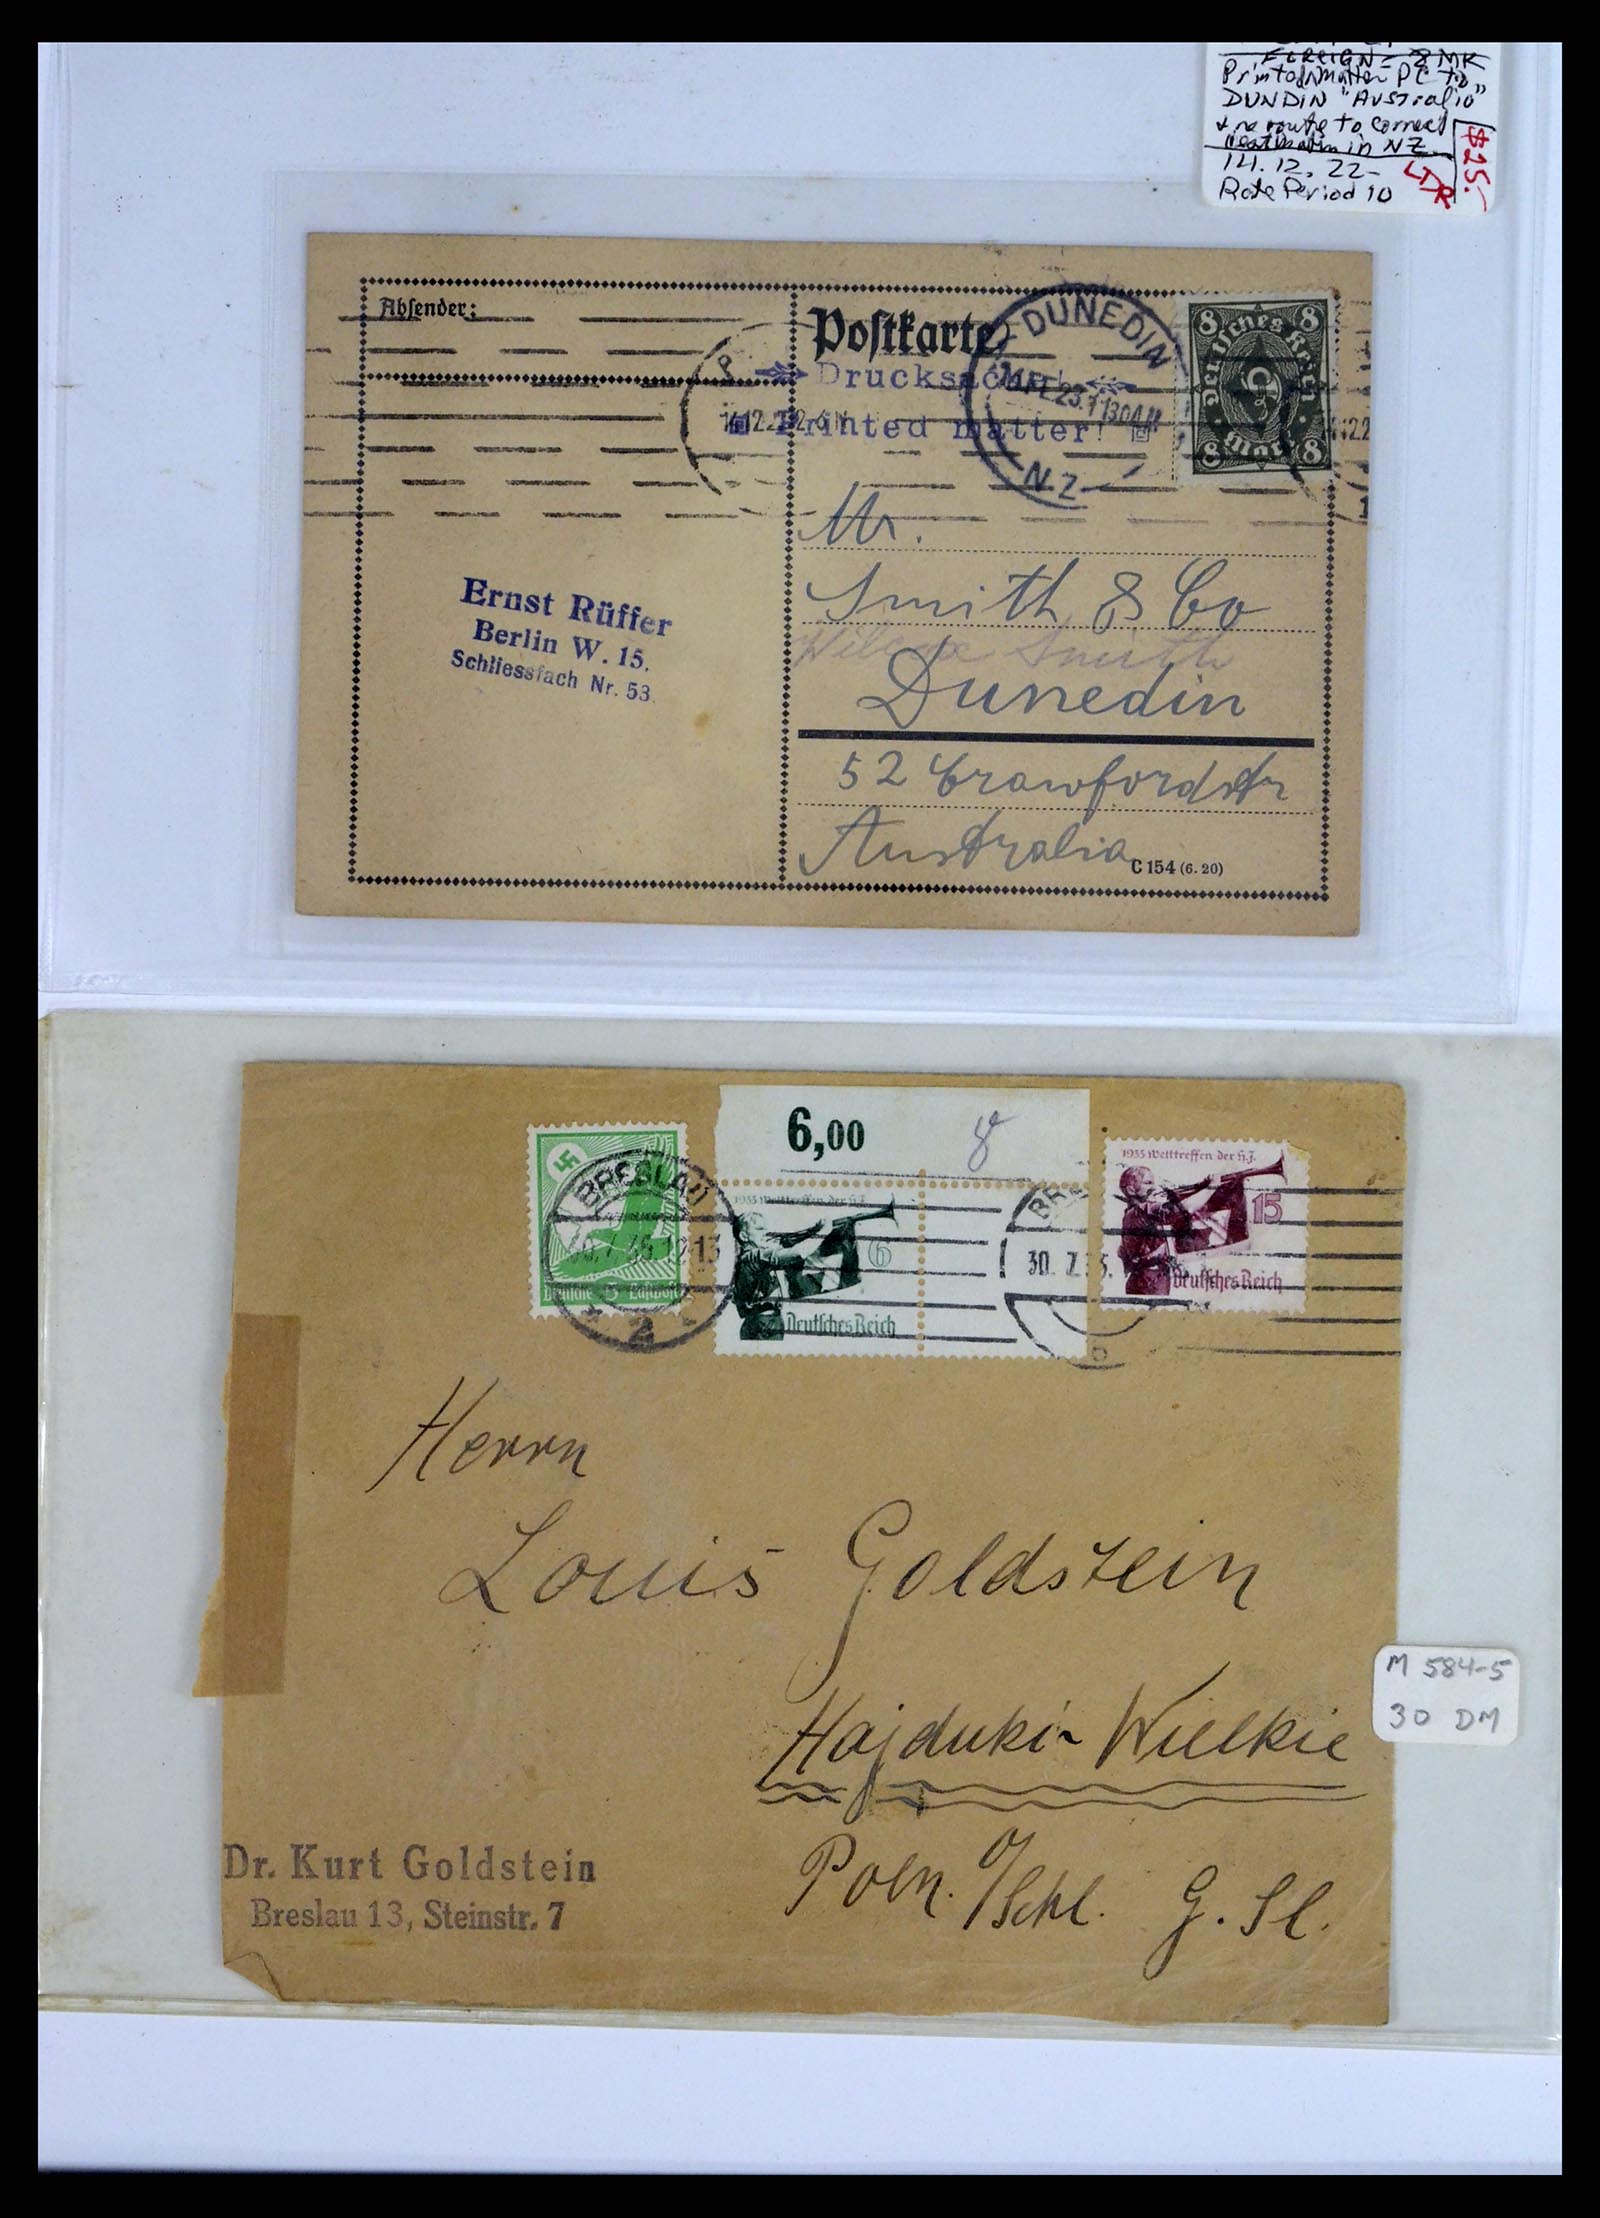 FOREIGN = 8 MK
Printed Matter PC to
DUNDIN "Australia"
+ re route to correct
in NZ
14. 12. 22-
Rate Period 10
$25.-
Absender:
Postkarte
Drucksache!
Printed matter!
DUNEDIN
N.Z.
8 8
Deutsches Reich
Mark
8 8
Mr.
Smith & Co
Smith
Dunedin
52 Crawfordstr
Australia
C 154 (6. 20)
Ernst Rüffer
Berlin W. 15.
Schliessfach Nr. 53.
6,00
BRESLAU
Deutsche 5 Luftpost
2
1935 Welttreffen der H.J.
6
Deutsches Reich
30. 7. 35.
1935 Welttreffen der H.J.
15
Deutsches Reich
Herrn
Louis Goldstein
Hajduki-Wielkie
Poln. O/Schl. G. Sl.
Dr. Kurt Goldstein
Breslau 13, Steinstr. 7
M 584-5
30 DM